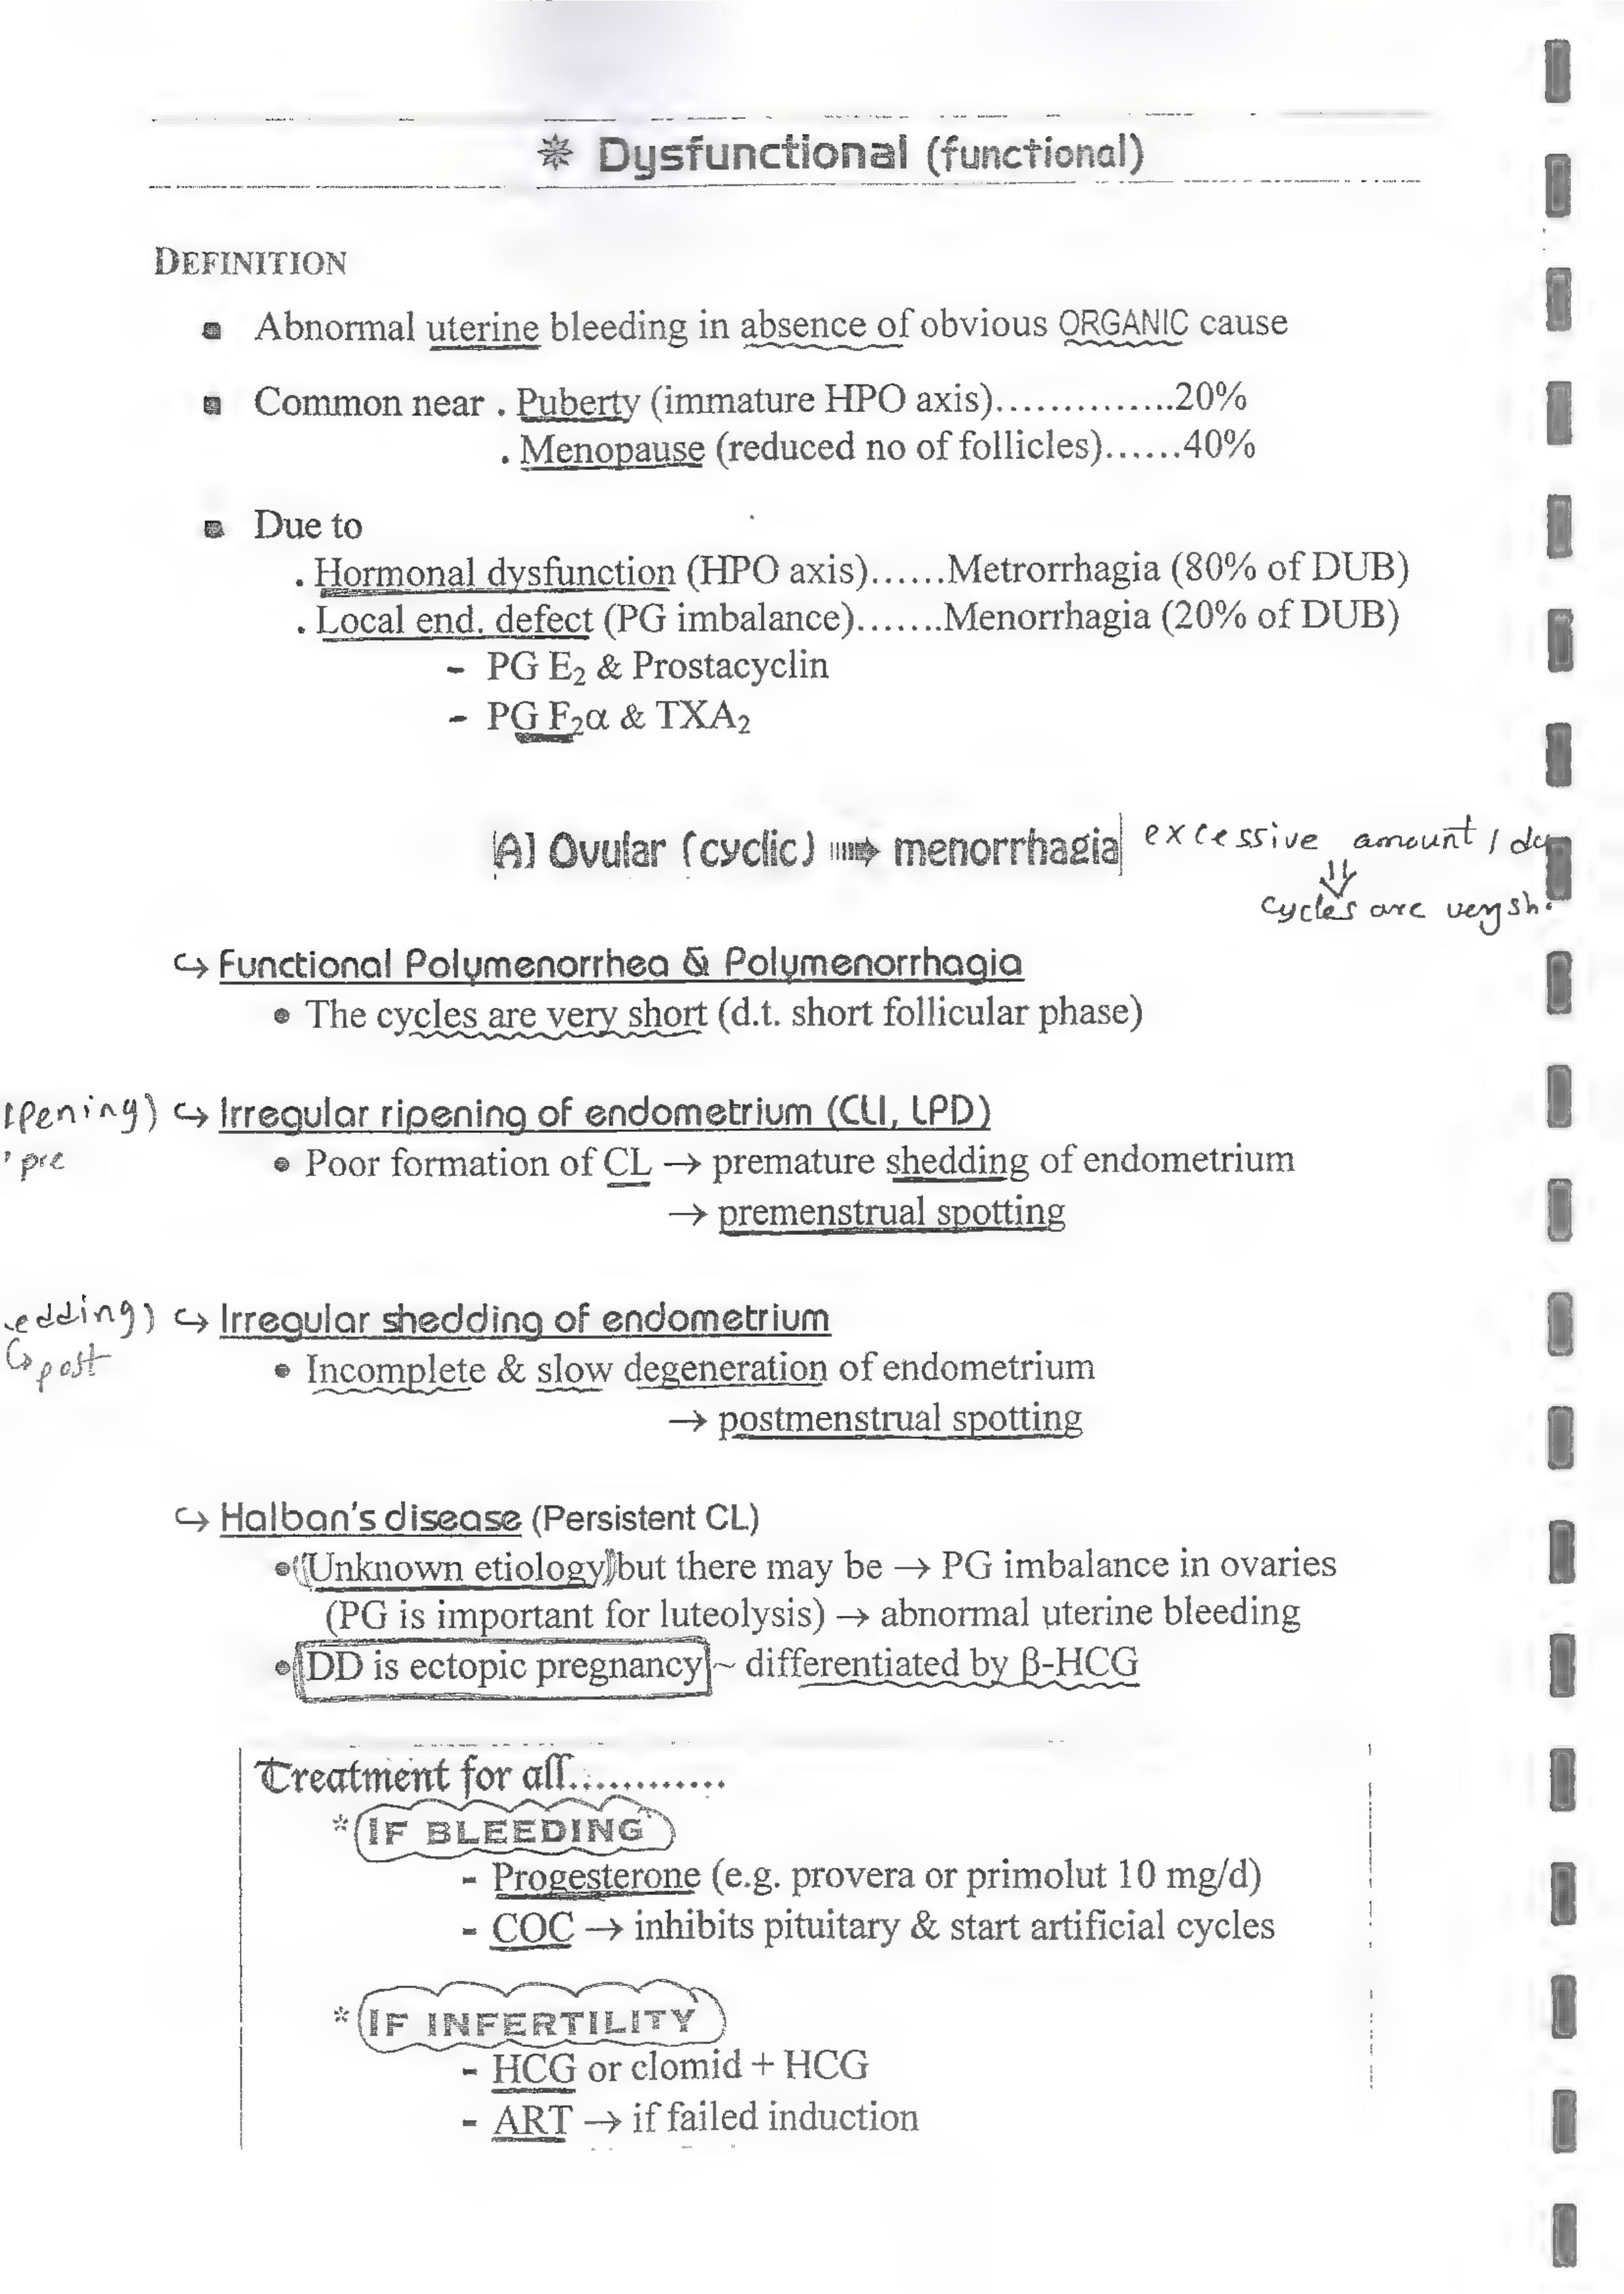 ✵ Dysfunctional (functional)
DEFINITION
▪ Abnormal uterine bleeding in absence of obvious ORGANIC cause
▪ Common near . Puberty (immature HPO axis)..............20%
. Menopause (reduced no of follicles)......40%
▪ Due to
. Hormonal dysfunction (HPO axis)......Metrorrhagia (80% of DUB)
. Local end. defect (PG imbalance).......Menorrhagia (20% of DUB)
- PG E₂ & Prostacyclin
- PG F₂α & TXA₂
A] Ovular (cyclic) ⇒ menorrhagia excessive amount /
⇓
cycles are very
↪ Functional Polymenorrhea & Polymenorrhagia
• The cycles are very short (d.t. short follicular phase)
ipening) ↪ Irregular ripening of endometrium (CLI, LPD)
pre • Poor formation of CL → premature shedding of endometrium
→ premenstrual spotting
edding) ↪ Irregular shedding of endometrium
↪ post • Incomplete & slow degeneration of endometrium
→ postmenstrual spotting
↪ Halban's disease (Persistent CL)
• (Unknown etiology) but there may be → PG imbalance in ovaries
(PG is important for luteolysis) → abnormal uterine bleeding
• DD is ectopic pregnancy ~ differentiated by β-HCG
Treatment for all............
* IF BLEEDING
- Progesterone (e.g. provera or primolut 10 mg/d)
- COC → inhibits pituitary & start artificial cycles
* IF INFERTILITY
- HCG or clomid + HCG
- ART → if failed induction